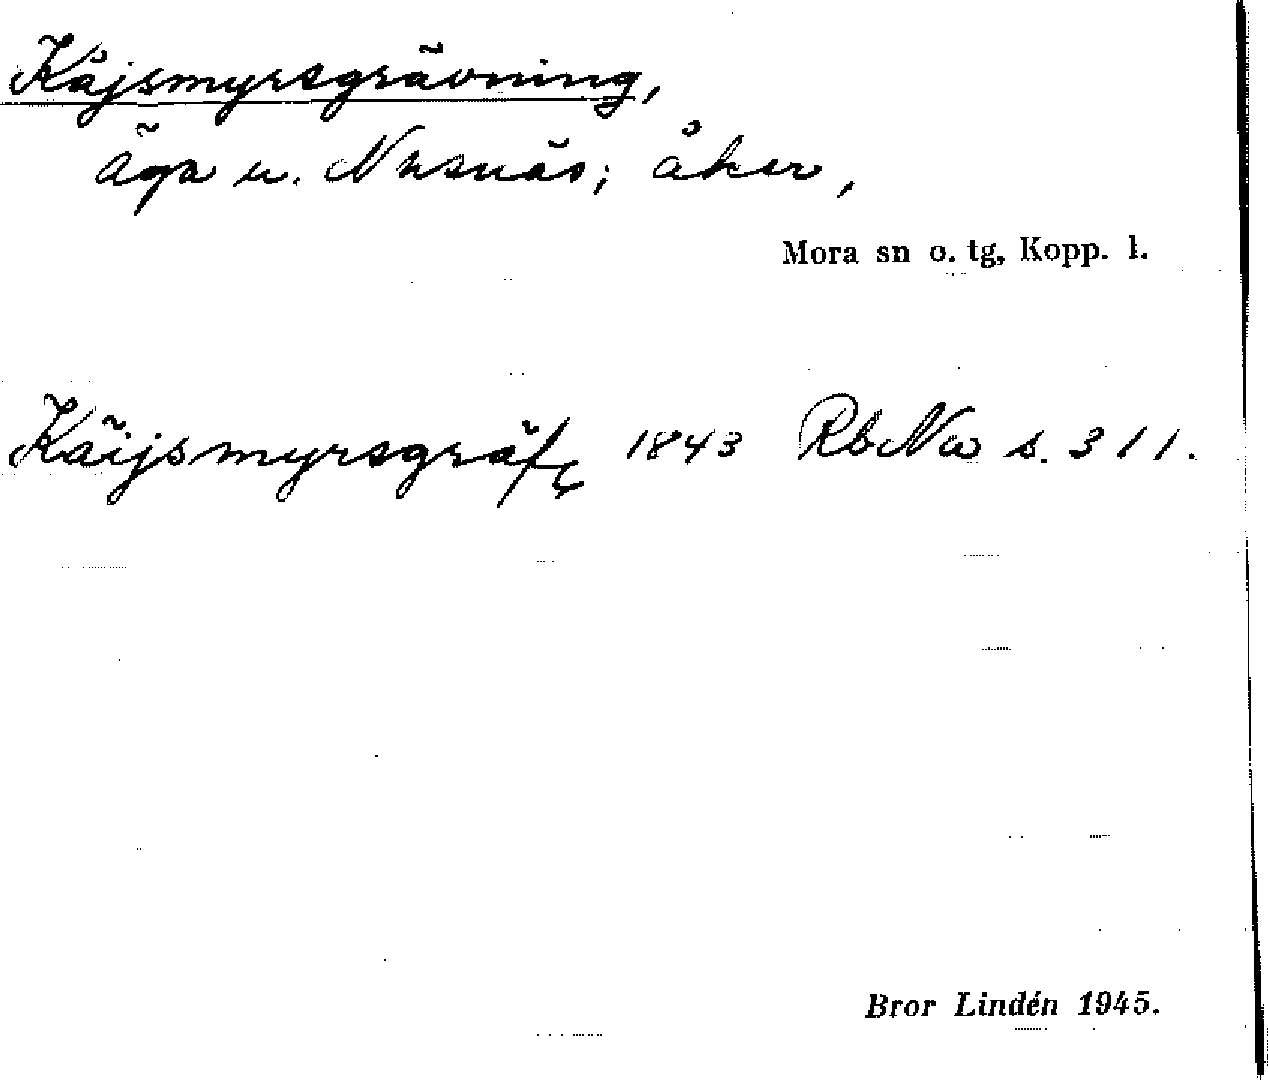 Kåjsmyrsgrävning,
äga u. Nusnäs; åker,
Mora sn o. tg, Kopp. l.
Käijsmyrsgräfç 1843 RbNa s. 311.
Bror Lindén 1945.